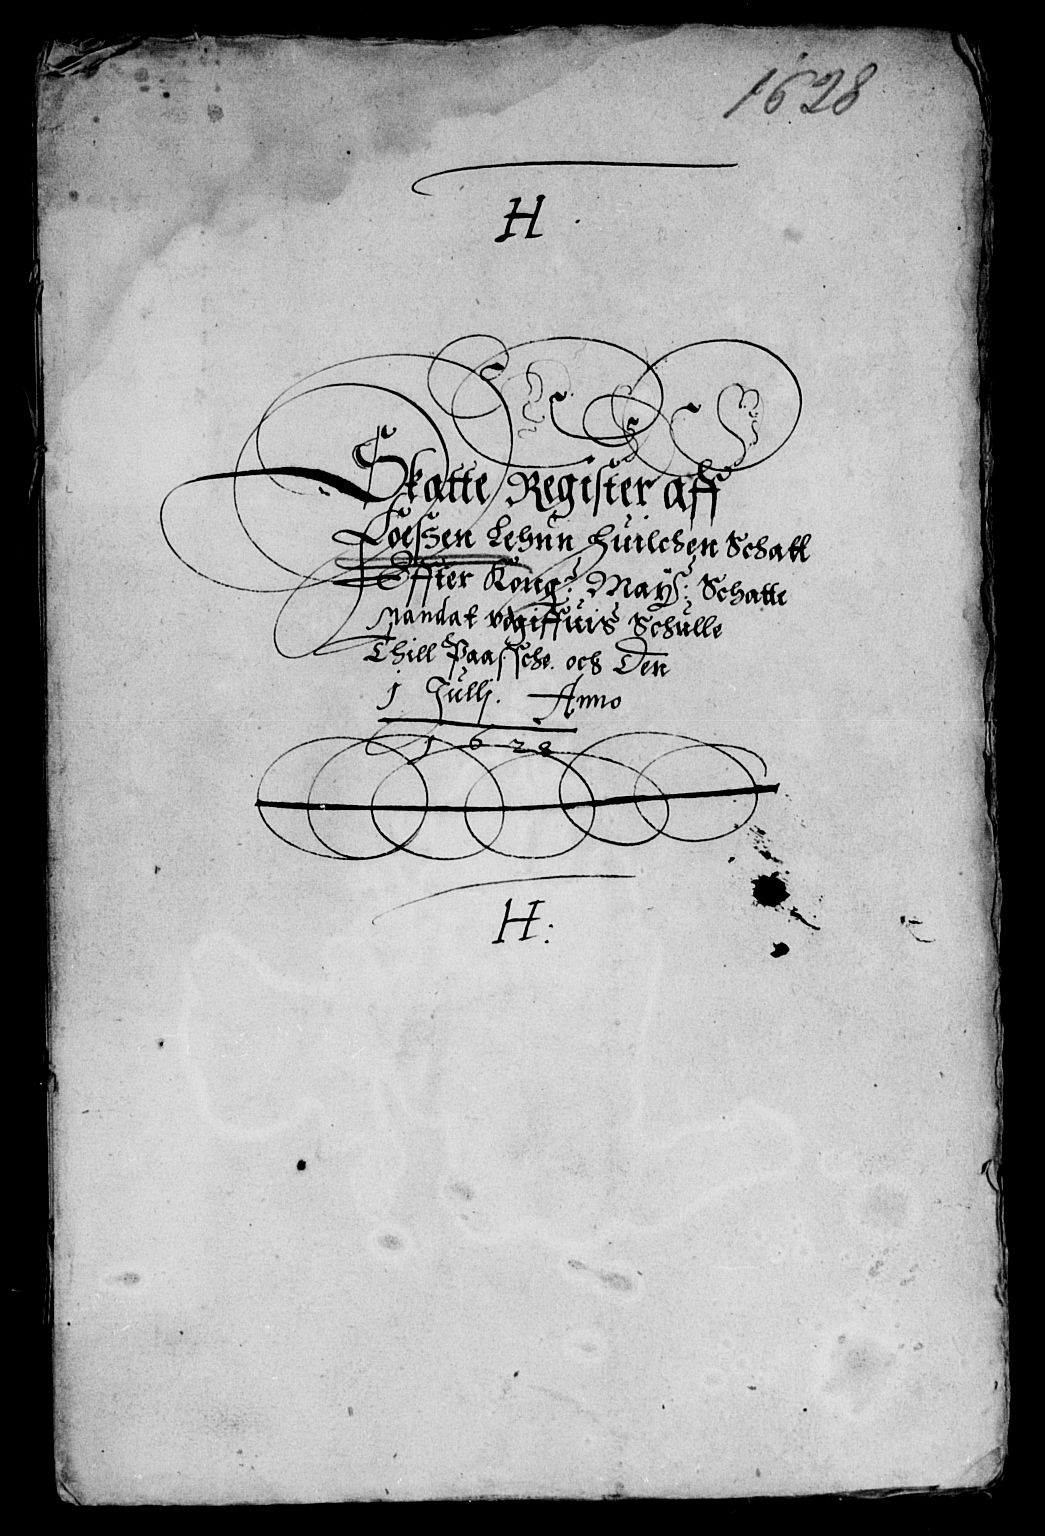 1628
H.
Skatte Register aff
Loessen Lehnn huilchen Schatt
Effter Kong: Mays: Schatte
Mandat vdgiffuis Schulle
Thill Paassche och Den
1 Julij. Anno
1628
H: